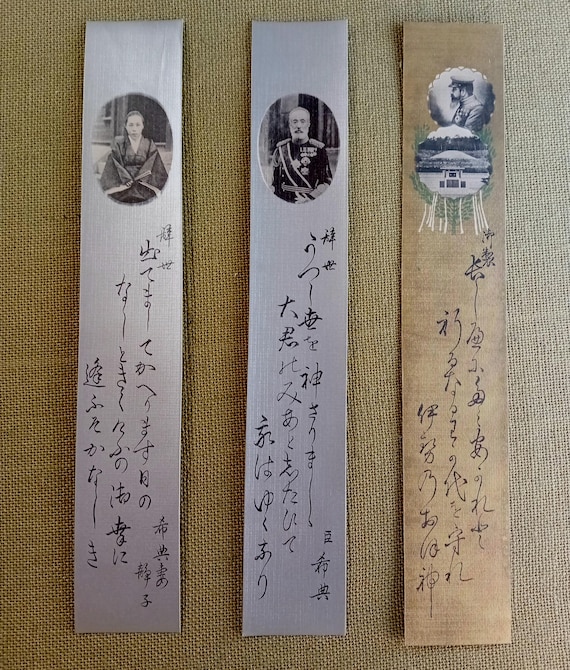 御製
長しへに民安かれと
祈るなるわか代を守れ
伊勢乃おほ神
辞世
うつし世を神さりましゝ
大君のみあとしたひて
我はゆくなり
臣 希典
辞世
出てましてかへります日の
なしときくけふの御幸に
逢ふそかなしき
希典妻
静子